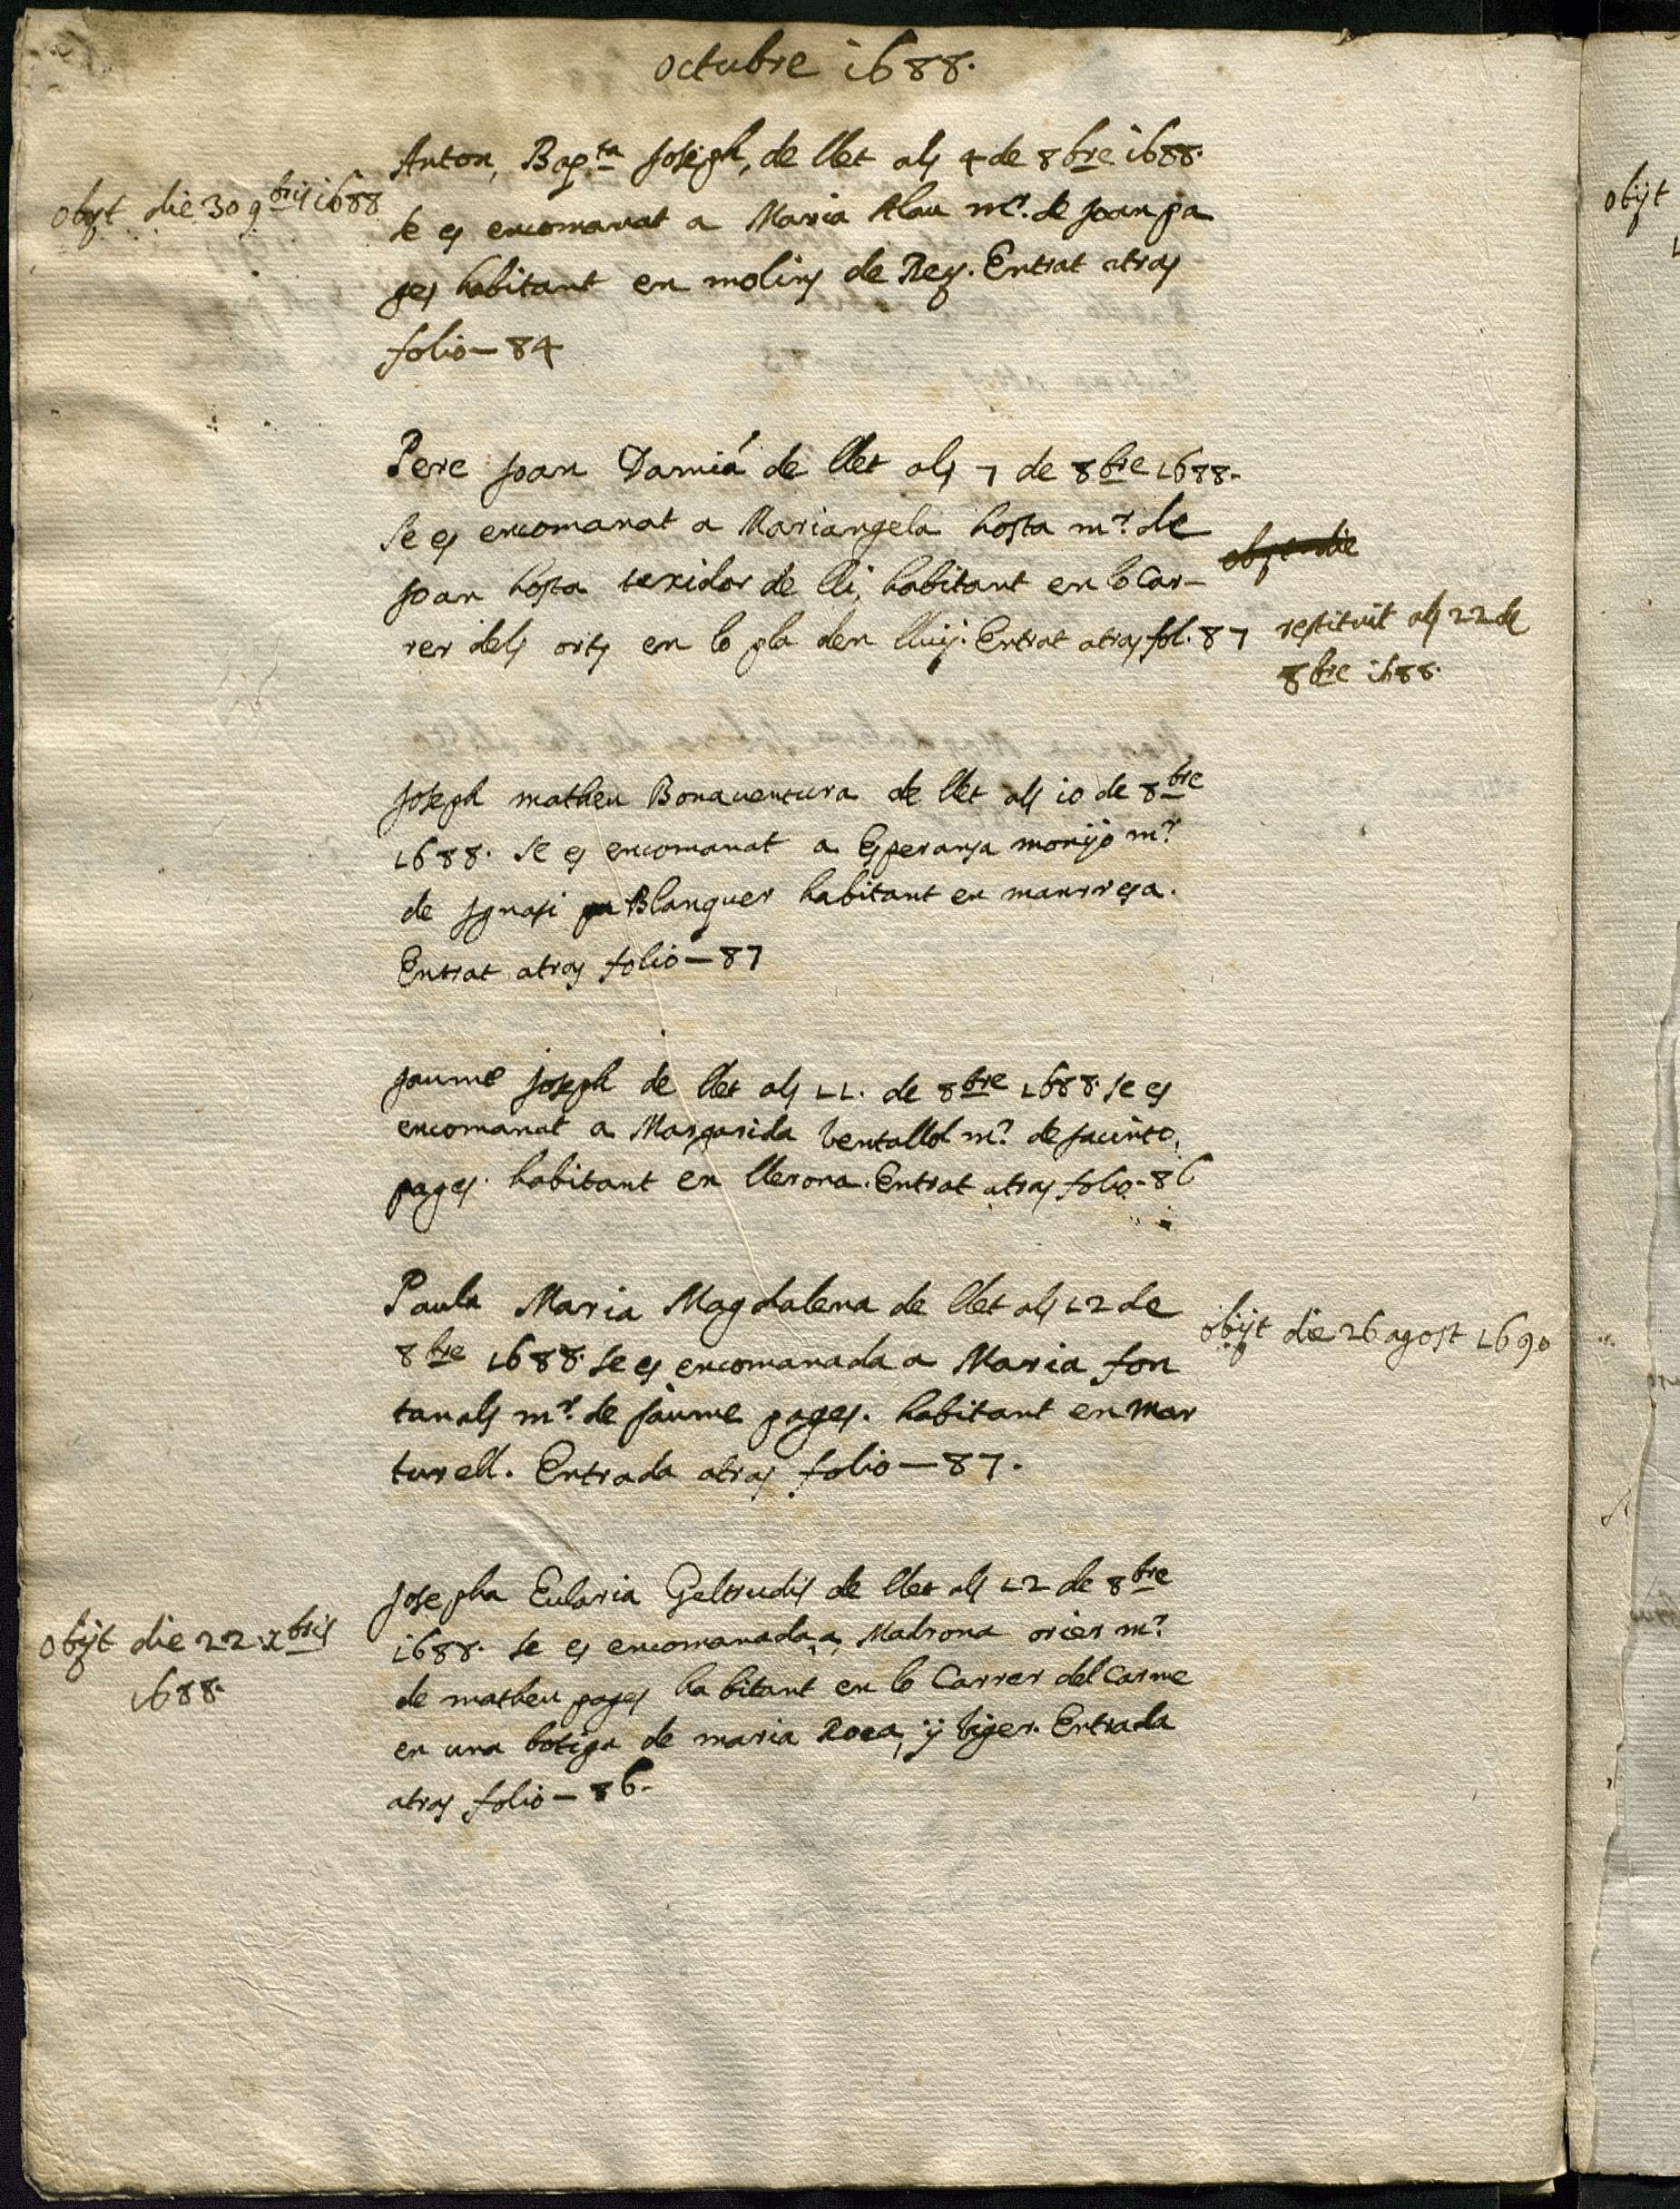 octubre 1688.
Anton, Bap.ta Joseph, de llet als 4 de 8bre 1688.
obijt die 30 9bris 1688
se es encomanat a Maria Alau mr. de Joan pa
ges habitant en molins de Rey. Entrat atras
folio – 84
Pere Joan Damiá de llet als 7 de 8bre 1688.
Se es encomanat a Mariangela hosta mr. de
obijt die
Joan hosta texidor de lli, habitant en lo Car–
rer dels orts en lo pla den lluy. Entrat atras fol. 87
restituit als 22 de
8bre 1688.
Joseph matheu Bonauentura de llet als 10 de 8bre
1688. se es encomanat a Esperansa monjo mr.
de Ignasi Blanquer habitant en manrresa.
Entrat atras folio – 87
Jaume Joseph de llet als 11. de 8bre 1688. se es
encomanat a Margarida Ventallol mr. de Jacinto,
pages. habitant en llerona. Entrat atras folio – 86
Paula Maria Magdalena de llet als 12 de
8bre 1688. se es encomanada a Maria fon
obijt die 26 agost 1690
tanals mr. de Jaume pages. habitant en Mar
turell. Entrada atras folio – 87.
Josepha Eularia Geltrudis de llet als 12 de 8bre
1688. se es encomanada, a, Madrona orier mr.
obijt die 22 xbris
1688.
de matheu pages habitant en lo Carrer del Carme
en una botiga de maria Roca, y Viger. Entrada
atras folio – 86.
obijt